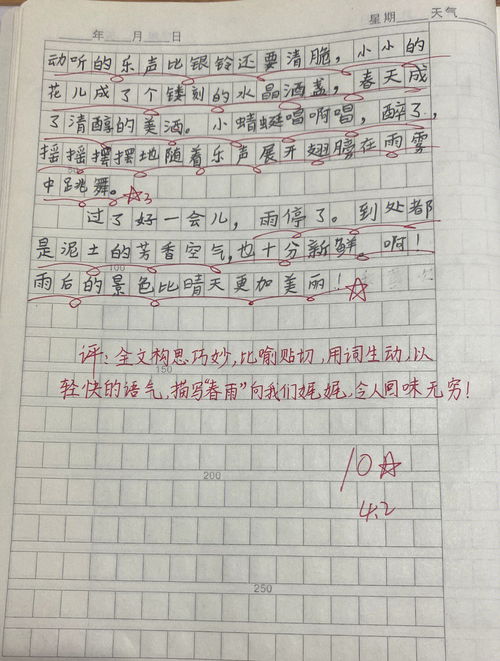 年 月 日 星期 天气
动听的乐声比银铃还要清脆，小小的
花儿成了个镂刻的水晶酒盏，春天成
了清醇的美酒。小蜻蜓唱啊唱，醉了，
摇摇摆摆地随着乐声展开翅膀在雨雾
中跳舞。☆3
过了好一会儿，雨停了。到处都
是泥土的芳香空气，也十分新鲜。啊！
雨后的景色比晴天更加美丽！☆
100
评：全文构思巧妙，比喻贴切，用词生动，以
150
轻快的语气，描写“春雨”向我们娓娓，令人回味无穷！
10☆
200
4.2
250